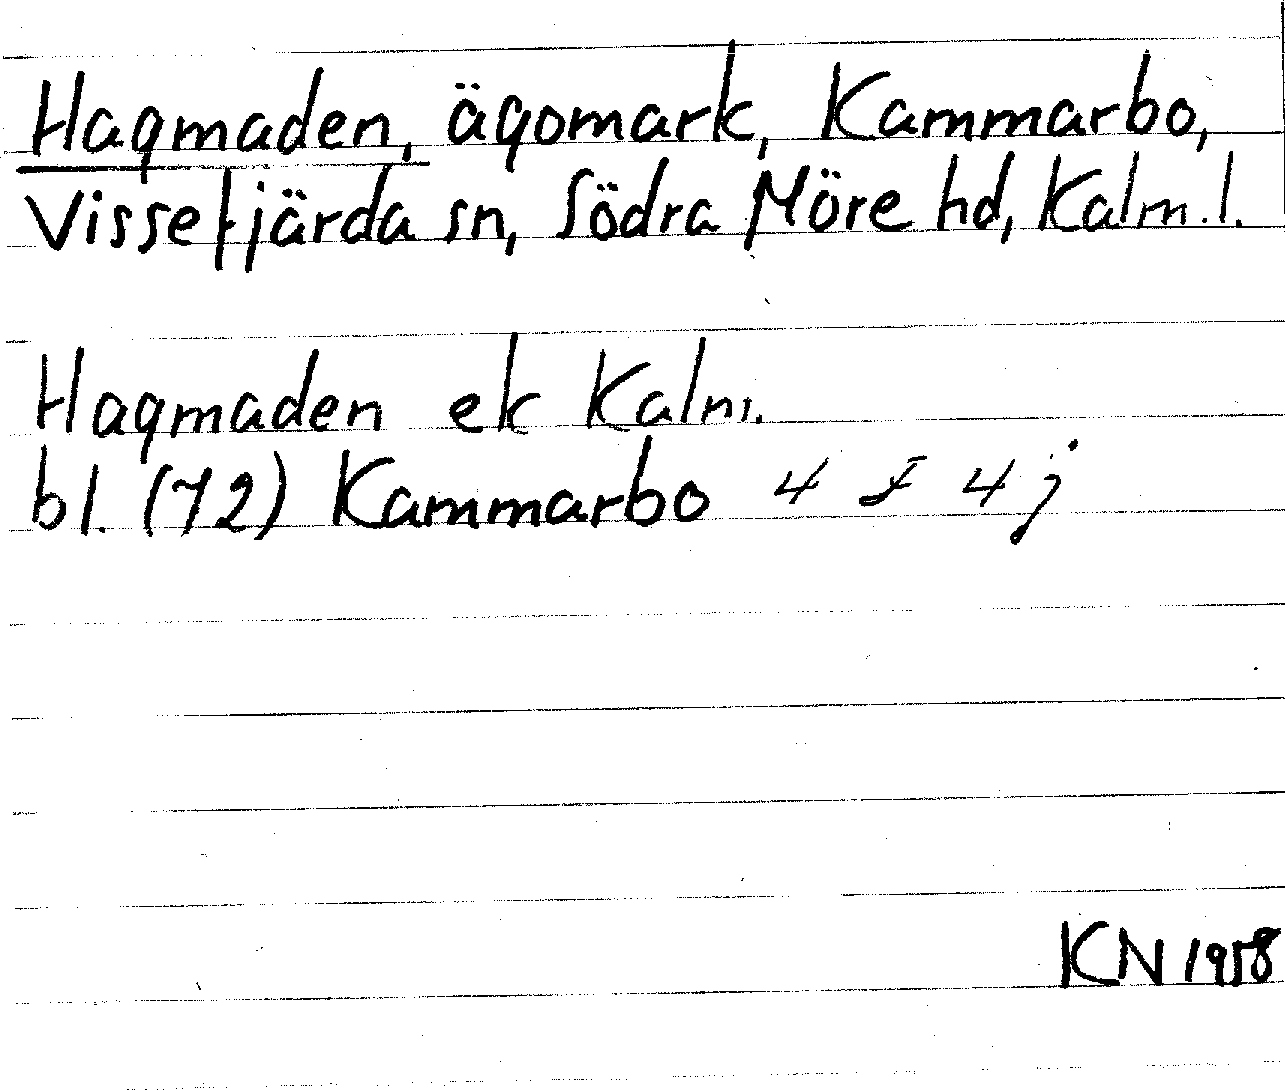 Hagmaden, ägomark, Kammarbo,
Vissefjärda sn, Södra Möre hd, Kalm. l.
Hagmaden ek Kalm.
bl. (72) Kammarbo 4 I 4 j
KN 1958